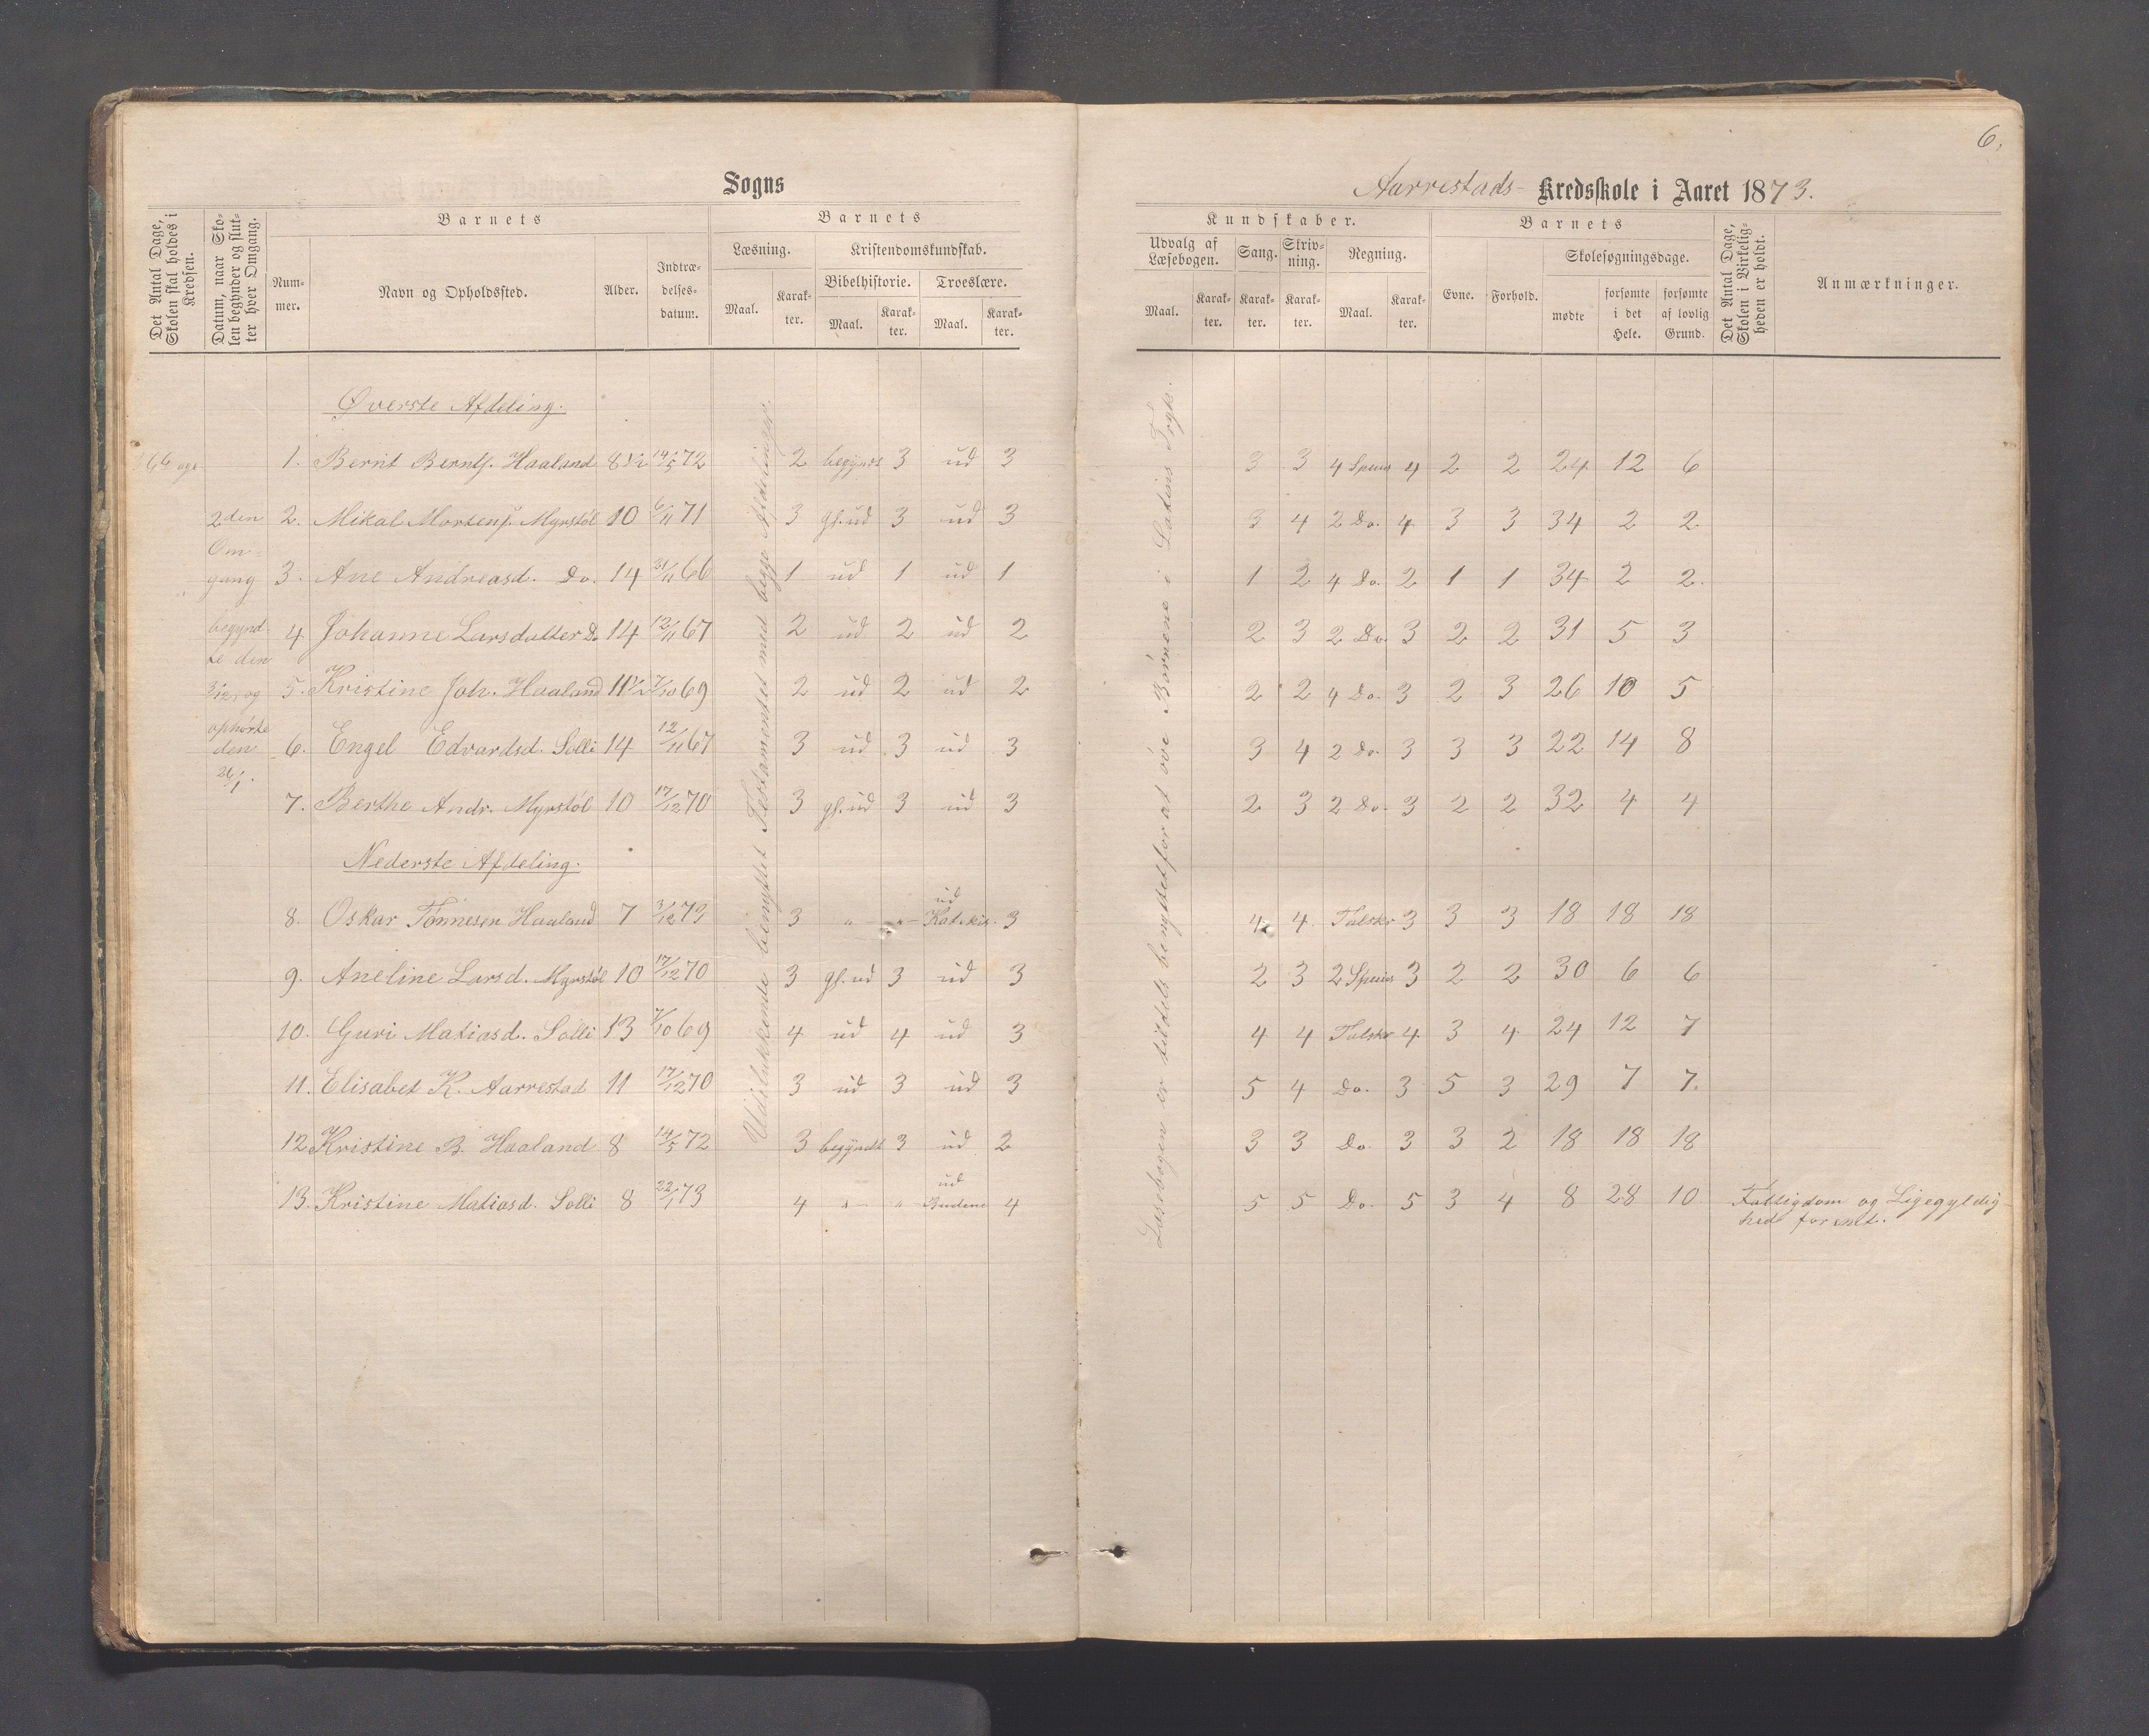 6.
Sogns
Aarrestads- Kredsskole i Aaret 1873.
Det Antal Dage, Skolen skal holdes i Kredsen.
Datum, naar Skolen begynder og slutter hver Omgang.
Barnets
Nummer.
Navn og Opholdssted.
Alder.
Indtrædelsesdatum.
Barnets
Læsning.
Kristendomskundskab.
Bibelhistorie.
Troeslære.
Maal. Karakter. Maal. Karakter. Maal. Karakter.
Kundskaber.
Udvalg af Læsebogen.
Sang.
Skrivning.
Regning.
Maal. Karakter. Karakter. Karakter. Maal. Karakter.
Barnets
Evne. Forhold.
Skolesøgningsdage.
mødte
forsømte i det Hele.
forsømte af lovlig Grund.
Det Antal Dage, Skolen i Virkeligheden er holdt.
Anmærkninger.
2den
Om-
gang
begynd-
te den
3/12, og
ophørte
den
26/1.
Udelukkende benyttet Testamentet med begge Afdelinger.
Læsebogen er tildels benyttet for at øve Børnene i Latins Tryk.
Øverste Afdeling.
1. Bernt Bernts. Haaland 8 1/2 14/5 72 2 begyndt 3 ud 3 3 3 4 Spesies 4 2 2 24 12 6
2. Mikal Mortens. Myrstøl 10 6/11 71 3 gj. ud 3 ud 3 3 4 2 Do. 4 3 3 34 2 2
3. Ane Andreasd. Do. 14 21/11 66 1 ud 1 ud 1 1 2 4 Do. 2 1 1 34 2 2.
4. Johanne Larsdatter Do 14 12/11 67 2 ud 2 ud 2 2 3 2 Do. 3 2 2 31 5 3
5. Kristine Joh. Haaland 11 1/2 7/10 69 2 ud 2 ud 2 2 2 4 Do. 3 2 3 26 10 5
6. Engel Edvardsd. Solli 14 12/11 67 3 ud 3 ud 3 3 4 2 Do. 3 3 3 22 14 8
7. Berthe Andr. Myrstøl 10 17/12 70 3 gj. ud 3 ud 3 2 3 2 Do. 3 2 2 32 4 4
Nederste Afdeling.
8. Oskar Tønnesen Haaland 7 3/12 73 3 " " ud Katekis. 3 4 4 Talskr 3 3 3 18 18 18
9. Aneline Larsd. Myrstøl 10 17/12 70 3 gj. ud 3 ud 3 2 3 2 Spesies 3 2 2 30 6 6
10. Guri Matiasd. Solli 13 7/10 69 4 ud 4 ud 3 4 4 Talskr 4 3 4 24 12 7
11. Elisabet K. Aarrestad 11 17/12 70 3 ud 3 ud 3 5 4 Do. 3 5 3 29 7 7.
12. Kristine B. Haaland 8 14/5 72 3 begyndt 3 ud 2 3 3 Do. 3 3 2 18 18 18
13. Kristine Matiasd. Solli 8 22/1 73 4 " " ud Budene 4 5 5 Do. 5 3 4 8 28 10 Fattigdom og Ligegyldig-
hed forsømt.